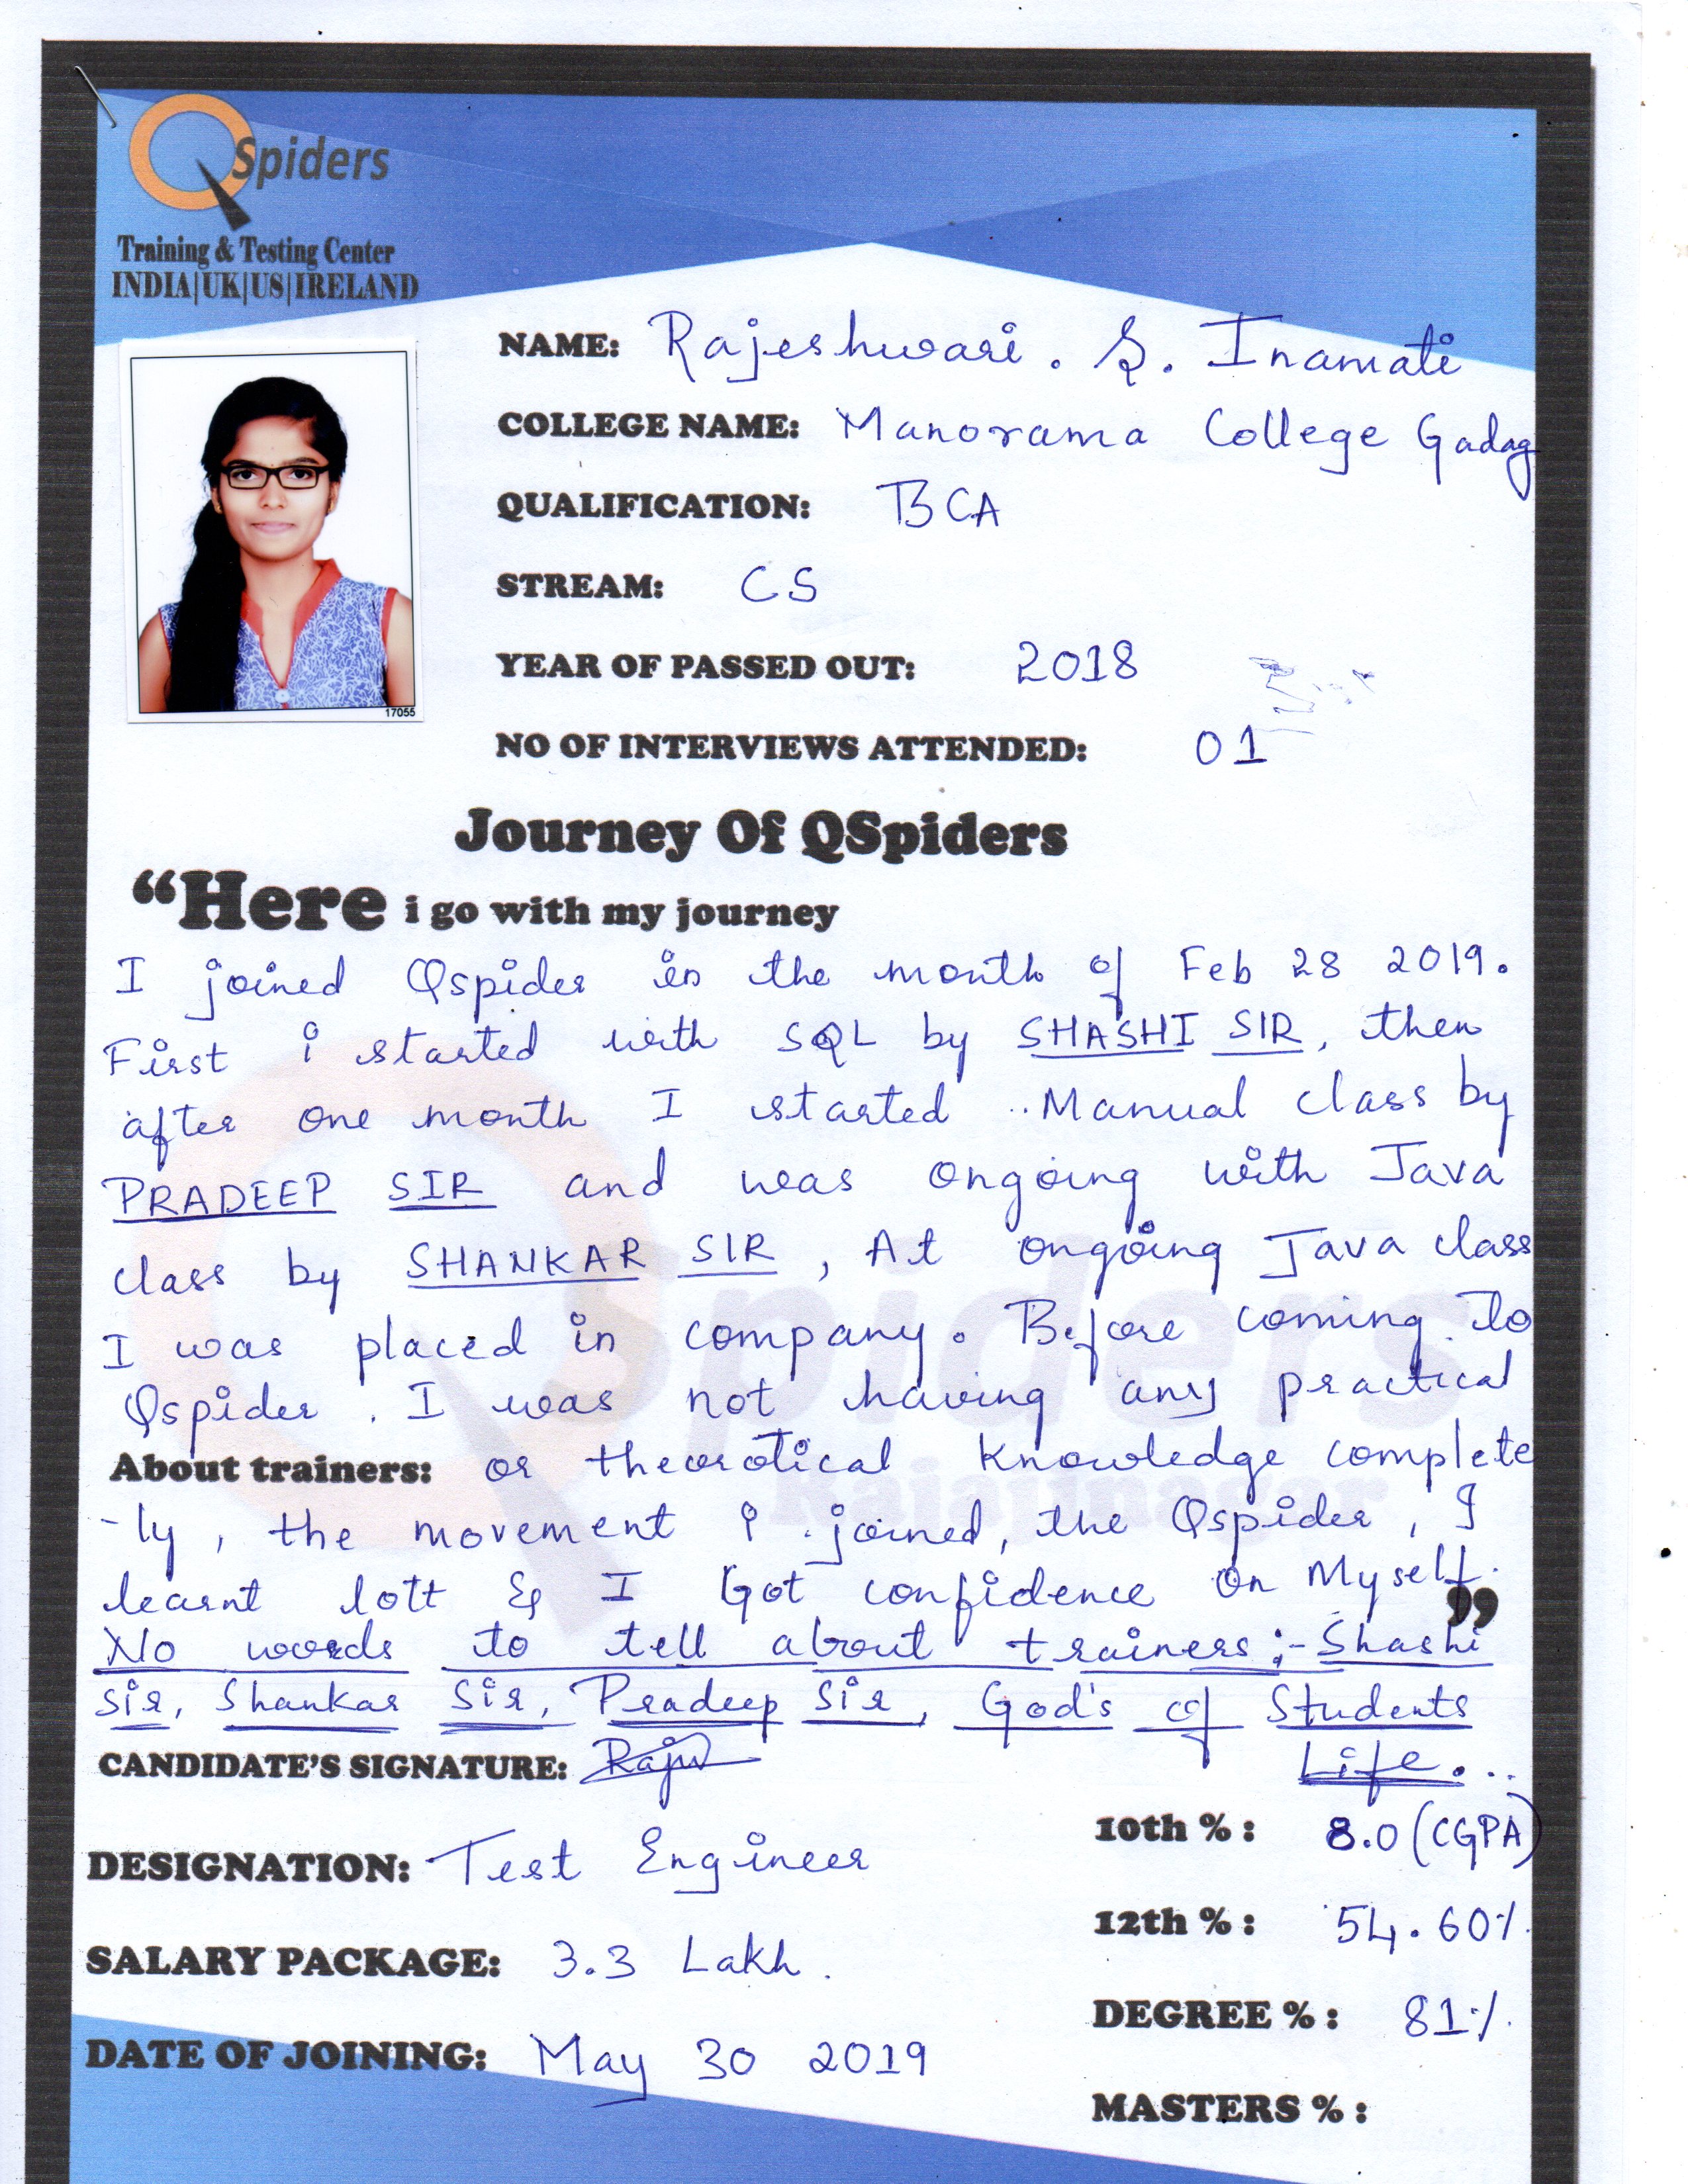 QSpiders
Training & Testing Center
INDIA|UK|US|IRELAND
NAME: Rajeshwari. S. Inamati
COLLEGE NAME: Manorama College Gadag
QUALIFICATION: BCA
STREAM: CS
YEAR OF PASSED OUT: 2018
17055
NO OF INTERVIEWS ATTENDED: 01
Journey Of QSpiders
“Here i go with my journey
I joined Qspider in the month of Feb 28 2019.
First i started with SQL by SHASHI SIR, then
after one month I started Manual class by
PRADEEP SIR and was ongoing with Java
class by SHANKAR SIR, At ongoing Java class
I was placed in company. Before coming to
Qspider. I was not having any practical
About trainers: or theorotical knowledge complete
-ly, the movement i joined, the Qspider, I
learnt lott & I Got confidence on Myself. ”
No words to tell about trainers:- Shashi
Sir, Shankar Sir, Pradeep Sir, God's of Students
Life...
CANDIDATE'S SIGNATURE: Raju
10th %: 8.0 (CGPA)
DESIGNATION: Test Engineer
12th %: 54.60%
SALARY PACKAGE: 3.3 Lakh.
DEGREE %: 81%.
DATE OF JOINING: May 30 2019
MASTERS %:
Spiders
Rajajinagar